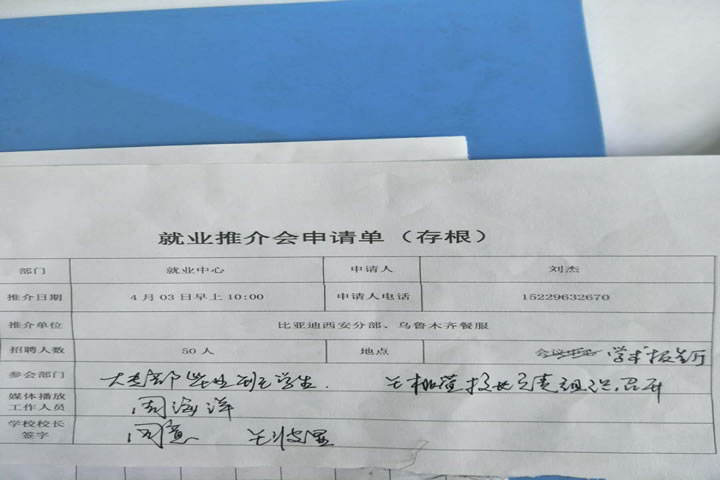 就业推介会申请单（存根）
部门 就业中心 申请人 刘杰
推介日期 4 月 03 日早上 10:00 申请人电话 15229632670
推介单位 比亚迪西安分部、乌鲁木齐餐服
招聘人数 50 人 地点 学术报告厅
参会部门 大专部毕业班学生.
媒体播放 周海洋
工作人员
学校校长 同意
签字